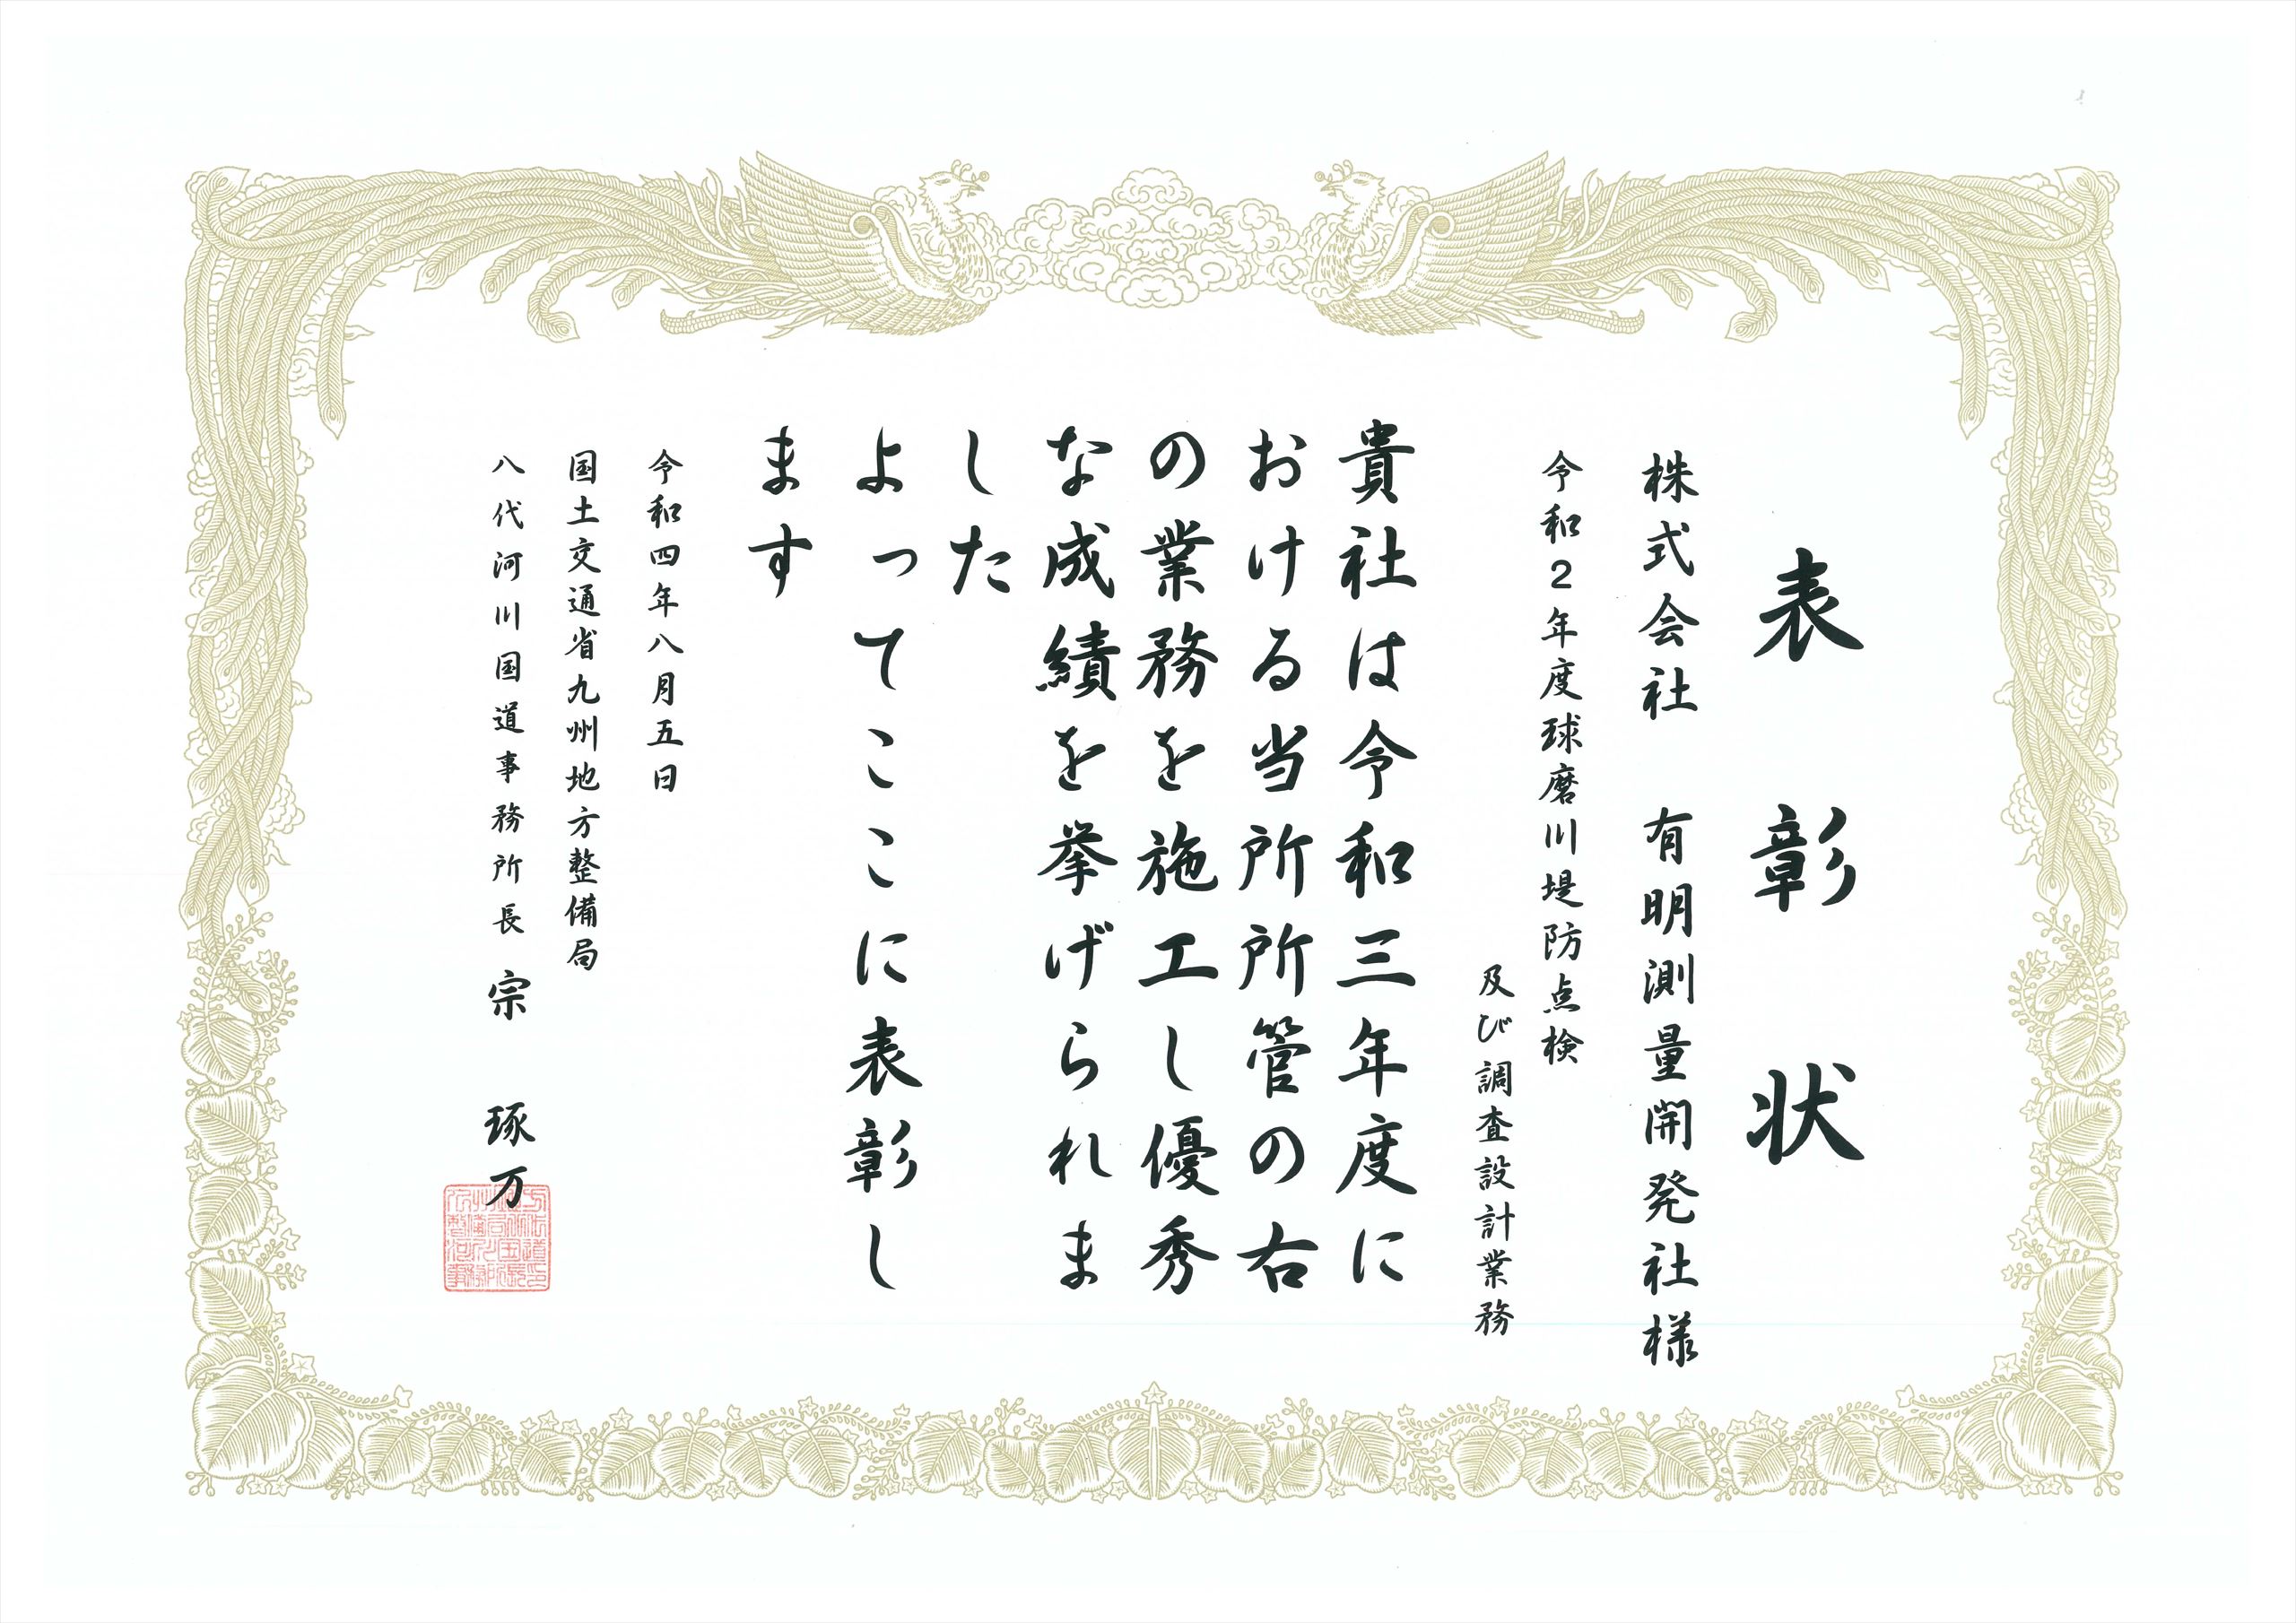 表彰状
株式会社　有明測量開発社様
令和２年度球磨川堤防点検
及び調査設計業務
貴社は令和三年度に
おける当所所管の右
の業務を施工し優秀
な成績を挙げられま
した
よってここに表彰し
ます
令和四年八月五日
国土交通省九州地方整備局
八代河川国道事務所長　宗　琢万